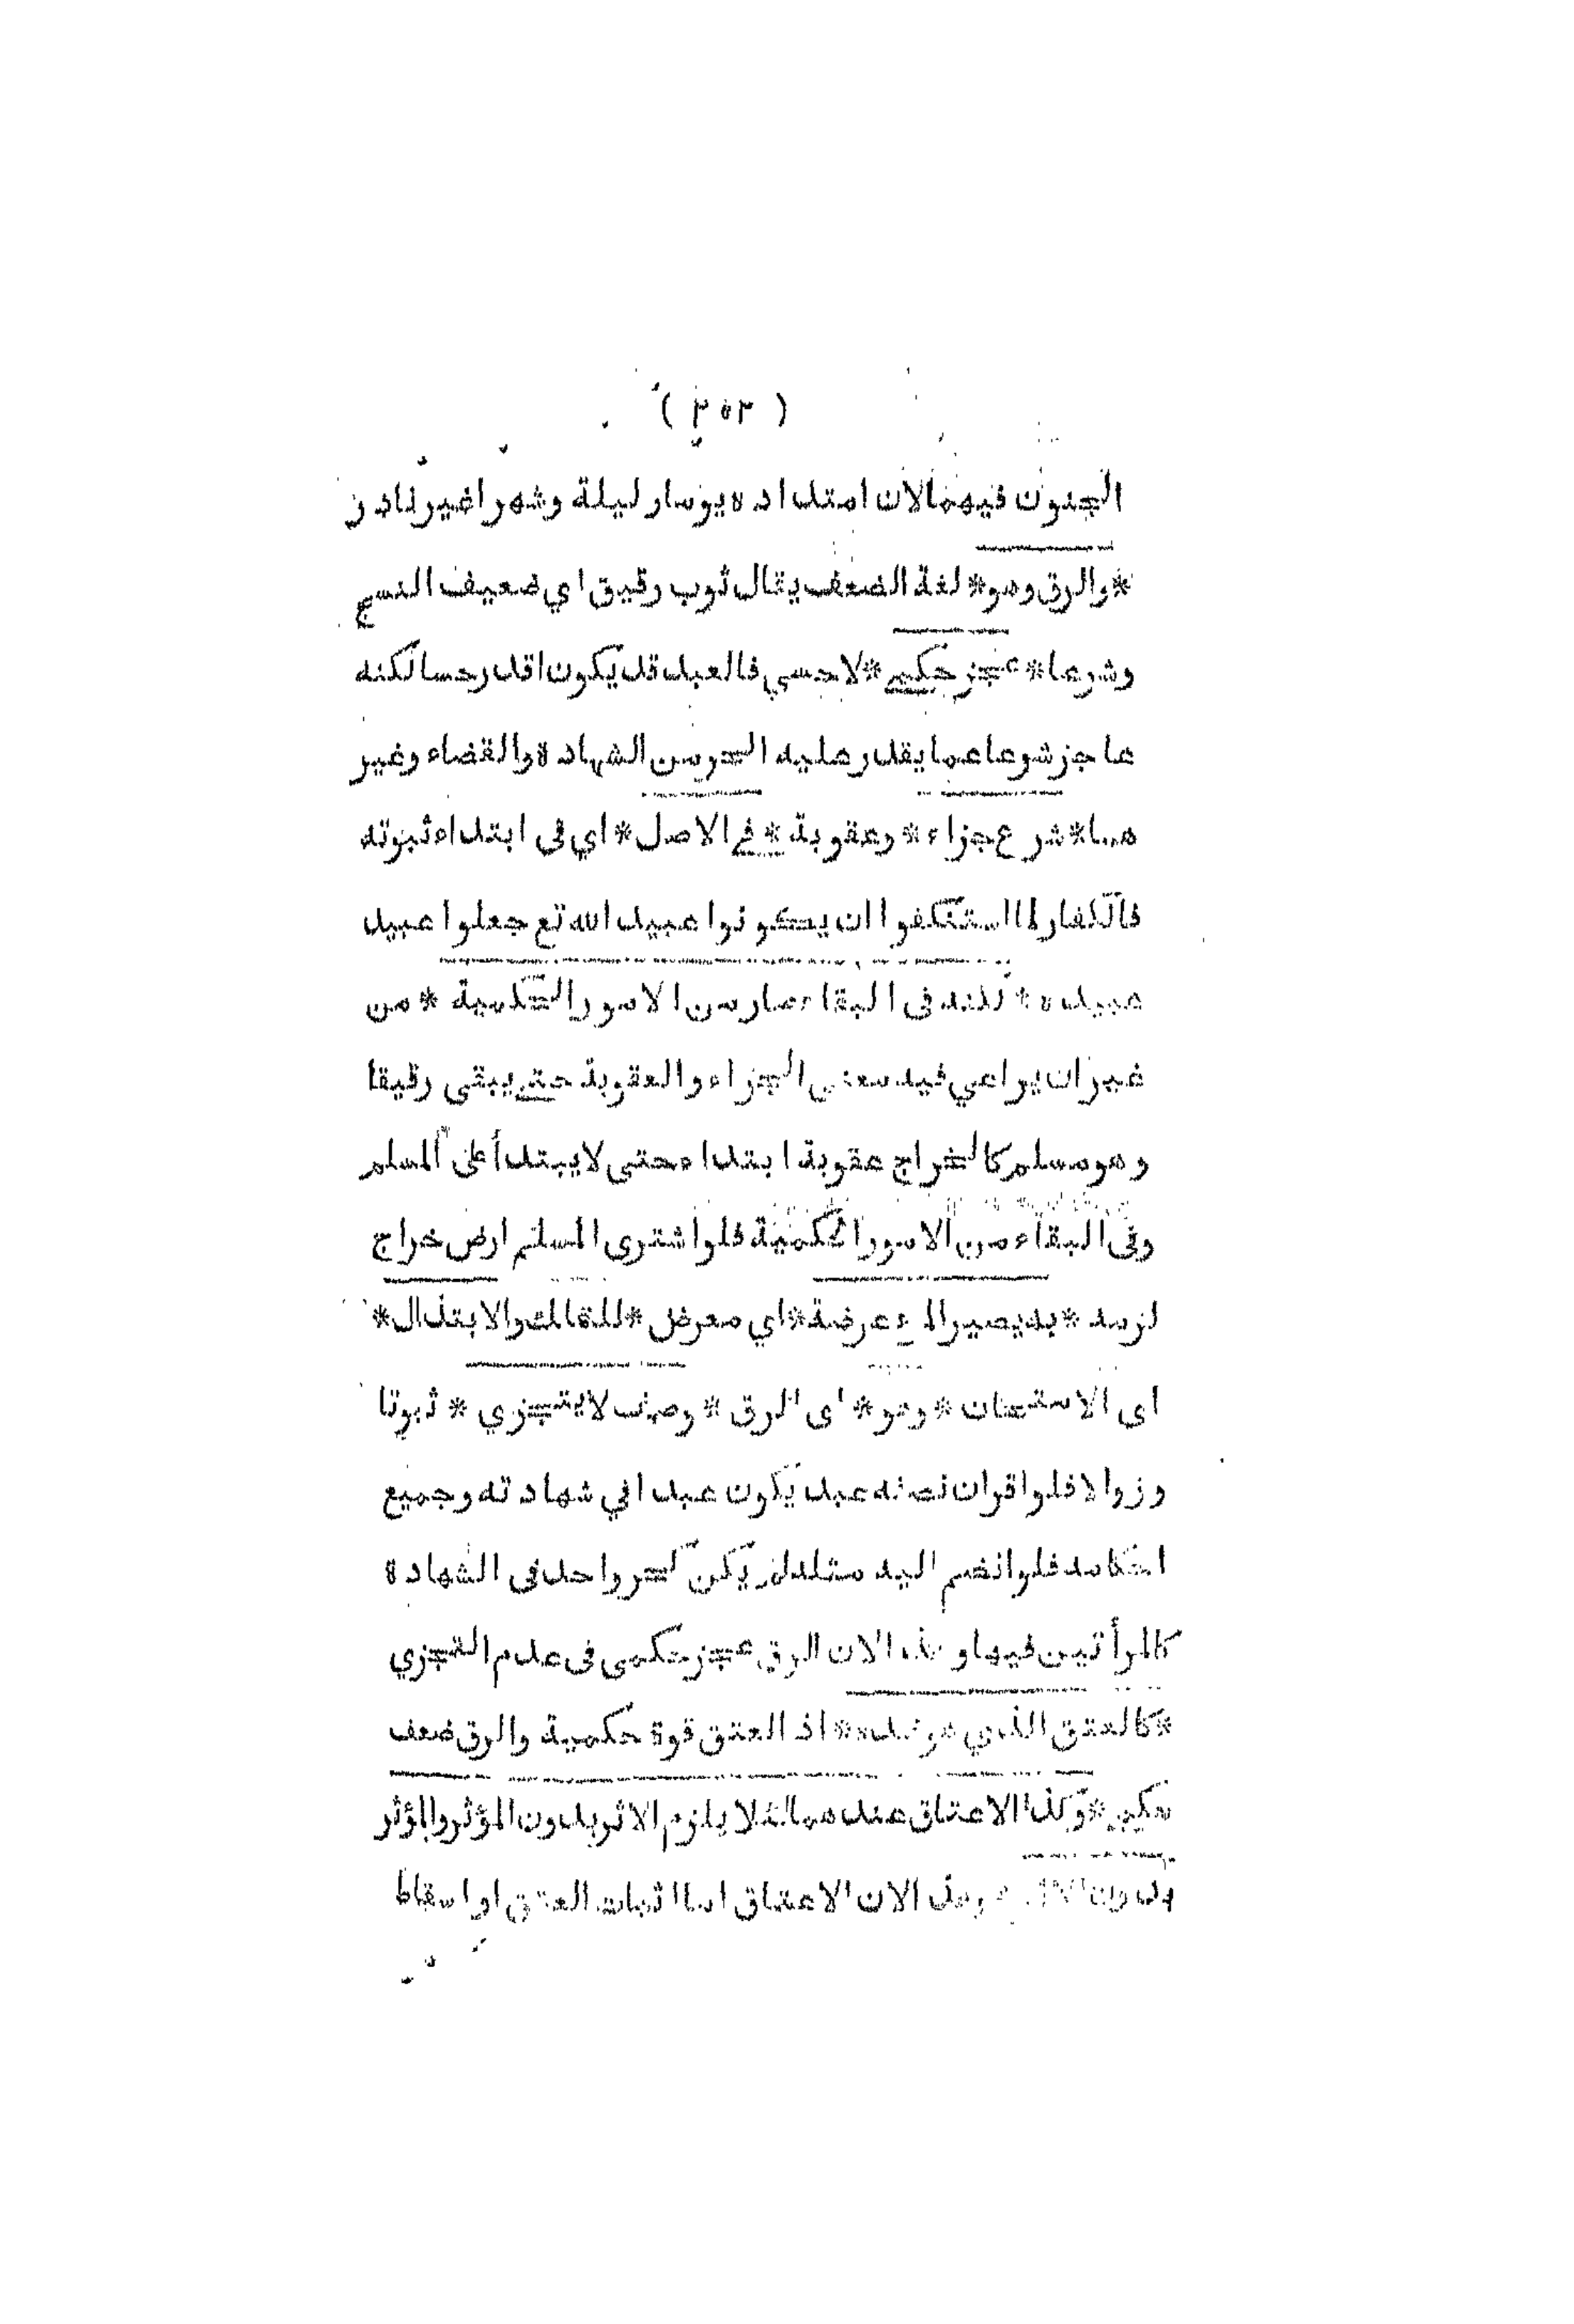 ( ٣٥٣ )
الجنون فيهما لان امتداده يوما وليلة وشهرا غير نادر
*والرق وهو* لغة الضعف يقال ثوب رقيق اي ضعيف النسج
وشرعا* عجز حكمي *لا حسي فالعبد قد يكون اقدر حسا لكنه
عاجز شرعا عما يقدر عليه الحر من الشهادة والقضاء وغير
هما* شرع جزاء * وعقوبة * في الاصل * اي في ابتداء ثبوته
فالكفار لما استنكفوا ان يكونوا عبيد الله تع جعلوا عبيد
عبيده * لكنه في البقاء صار من الامور الحكمية * من
غير ان يراعي فيه معنى الجزاء والعقوبة حتى يبقى رقيقا
وهو مسلم كالخراج عقوبة ابتداء حتى لا يبتدأ على المسلم
وفي البقاء من الامور الحكمية فلو اشترى المسلم ارض خراج
لزمه * به يصير المرء عرضة * اي معرض * للتمالك والابتذال *
اى الامتهان * وهو * اى الرق * وصف لا يتجزي * ثبوتا
وزوالا فلو اقر ان نصفه عبد يكون عبدا في شهادته وجميع
احكامه فلو انضم اليه مثله لم يكن كحر واحد في الشهادة
كالمرأتين فيها وهذا لان الرق عجز حكمى فى عدم التجزي
* كالعتق الذي هو ضده * اذ العتق قوة حكمية والرق ضعف
حكمي * وكذا الاعتاق عندهما لئلا يلزم الاثر بدون المؤثر والمؤثر
بدون الاثر * وهذا لان الاعتاق اما اثبات العتق او اسقاط